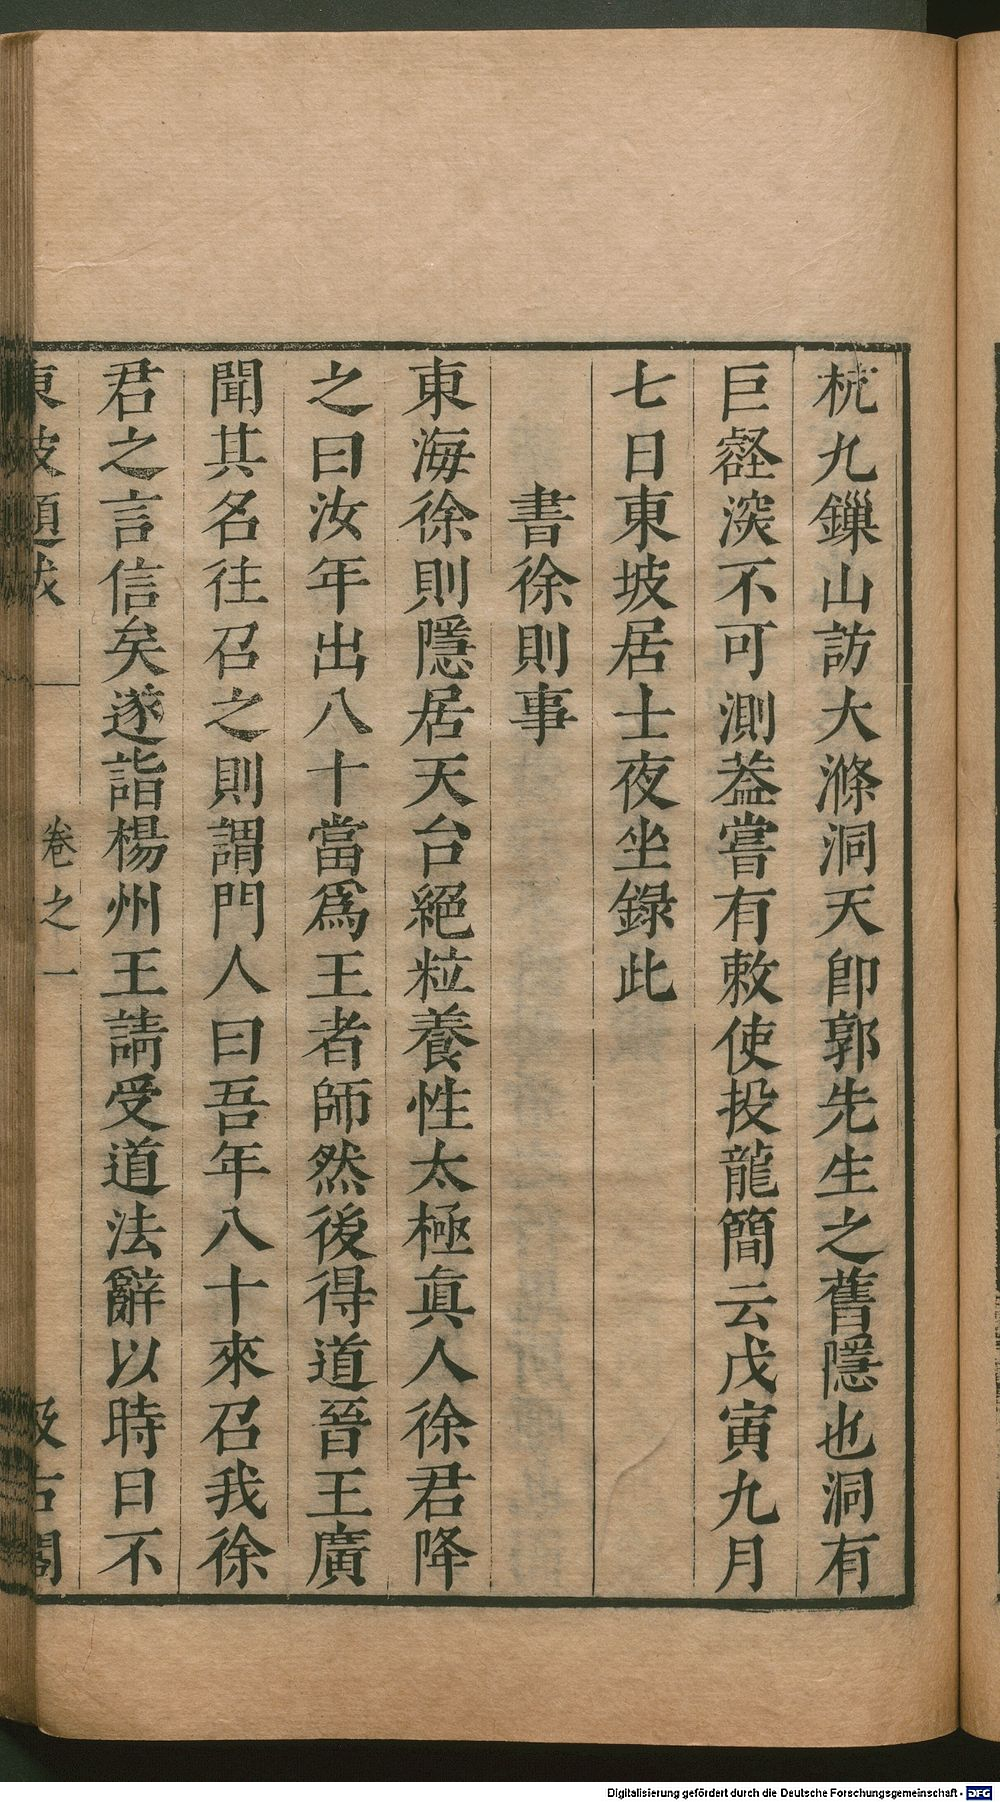 杭九鏁山訪大滌洞天卽郭先生之舊隱也洞有
巨壑深不可測葢嘗有敕使投龍簡云戊寅九月
七日東坡居士夜坐録此
書徐則事
東海徐則隱居天台絕粒養性太極眞人徐君降
之曰汝年出八十當爲王者師然後得道晉王廣
聞其名往召之則謂門人曰吾年八十來召我徐
君之言信矣遂詣楊州王請受道法辭以時日不
東坡題跋
卷之一
汲古閣
Digitalisierung gefördert durch die Deutsche Forschungsgemeinschaft - DFG